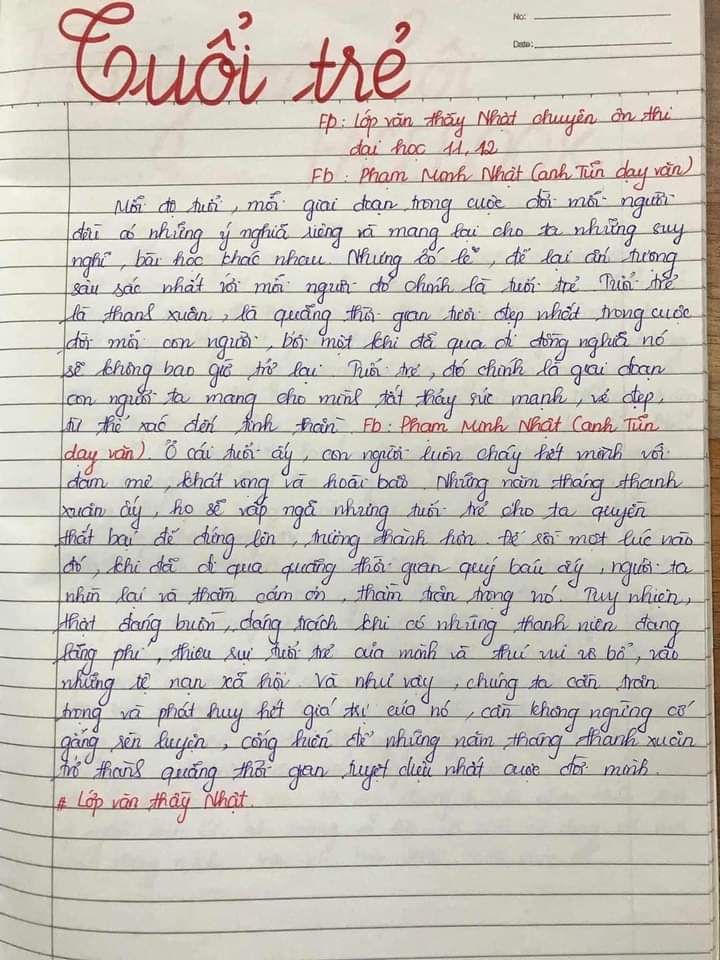 No:
Date:
Tuổi trẻ
Fb: Lớp văn thầy Nhật chuyên ôn thi
đại học 11, 12
Fb: Phạm Minh Nhật (anh Tũn dạy văn)
Mỗi độ tuổi, mỗi giai đoạn trong cuộc đời mỗi người
đều có những ý nghĩa riêng và mang lại cho ta những suy
nghĩ, bài học khác nhau. Nhưng có lẽ, để lại ấn tượng
sâu sắc nhất với mỗi người đó chính là tuổi trẻ. Tuổi trẻ
là thanh xuân, là quãng thời gian tươi đẹp nhất trong cuộc
đời mỗi con người, bởi một khi đã qua đi đồng nghĩa nó
sẽ không bao giờ trở lại. Tuổi trẻ, đó chính là giai đoạn
con người ta mang cho mình tất thảy sức mạnh, vẻ đẹp,
từ thể xác đến tinh thần. Fb: Phạm Minh Nhật (anh Tũn
dạy văn). Ở cái tuổi ấy, con người luôn cháy hết mình với
đam mê, khát vọng và hoài bão. Những năm tháng thanh
xuân ấy, họ sẽ vấp ngã nhưng tuổi trẻ cho ta quyền
thất bại để đứng lên, trưởng thành hơn. Để rồi một lúc nào
đó, khi đã đi qua quãng thời gian quý báu ấy, người ta
nhìn lại và thầm cảm ơn, thầm trân trọng nó. Tuy nhiên,
thật đáng buồn, đáng trách khi có những thanh niên đang
lãng phí, thiêu rụi tuổi trẻ của mình và thú vui vô bổ, vào
những tệ nạn xã hội. Và như vậy, chúng ta cần trân
trọng và phát huy hết giá trị của nó, cần không ngừng cố
gắng rèn luyện, cống hiến để những năm tháng thanh xuân
trở thành quãng thời gian tuyệt diệu nhất cuộc đời mình.
# Lớp văn thầy Nhật.